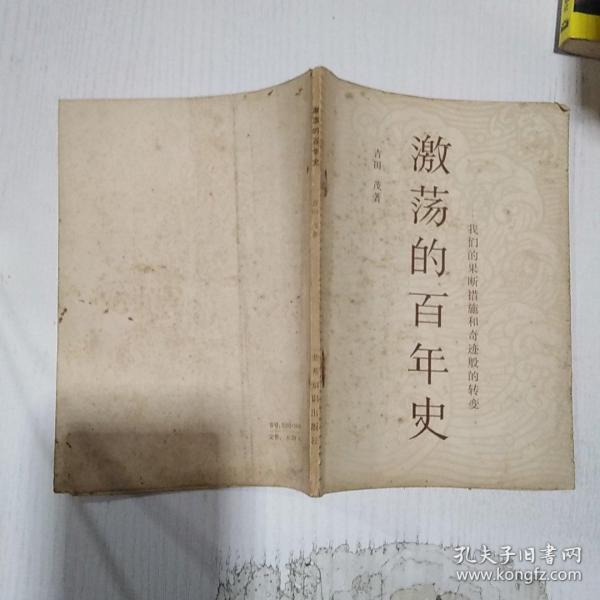 激荡的百年史
——我们的果断措施和奇迹般的转变
吉田 茂著
激荡的百年史
吉田 茂著
世界知识出版社
孔夫子旧书网
www.kongfz.com